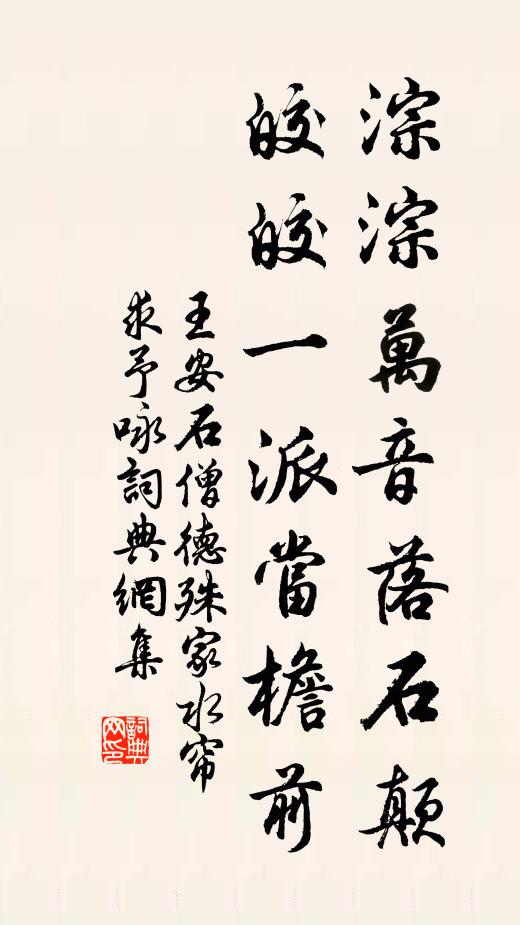 淙淙萬音落石顛
皎皎一派當檐前
王安石僧德殊家水帘
求予咏詞典網集
詞典網印